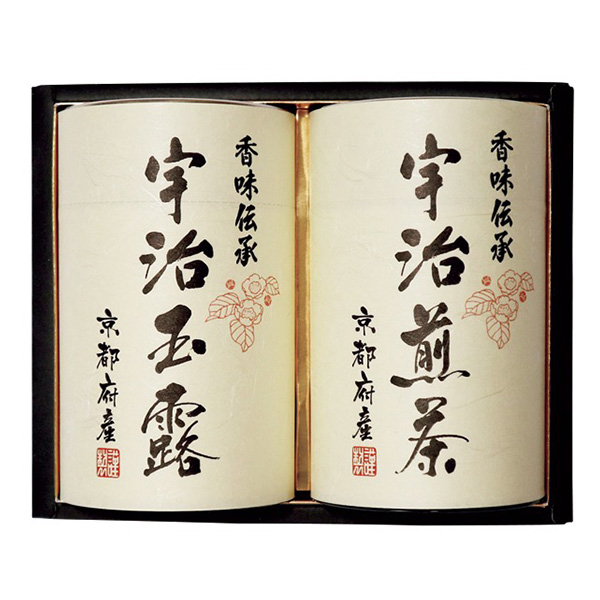 香味伝承
宇治玉露
京都府産
謹製
香味伝承
宇治煎茶
京都府産
謹製